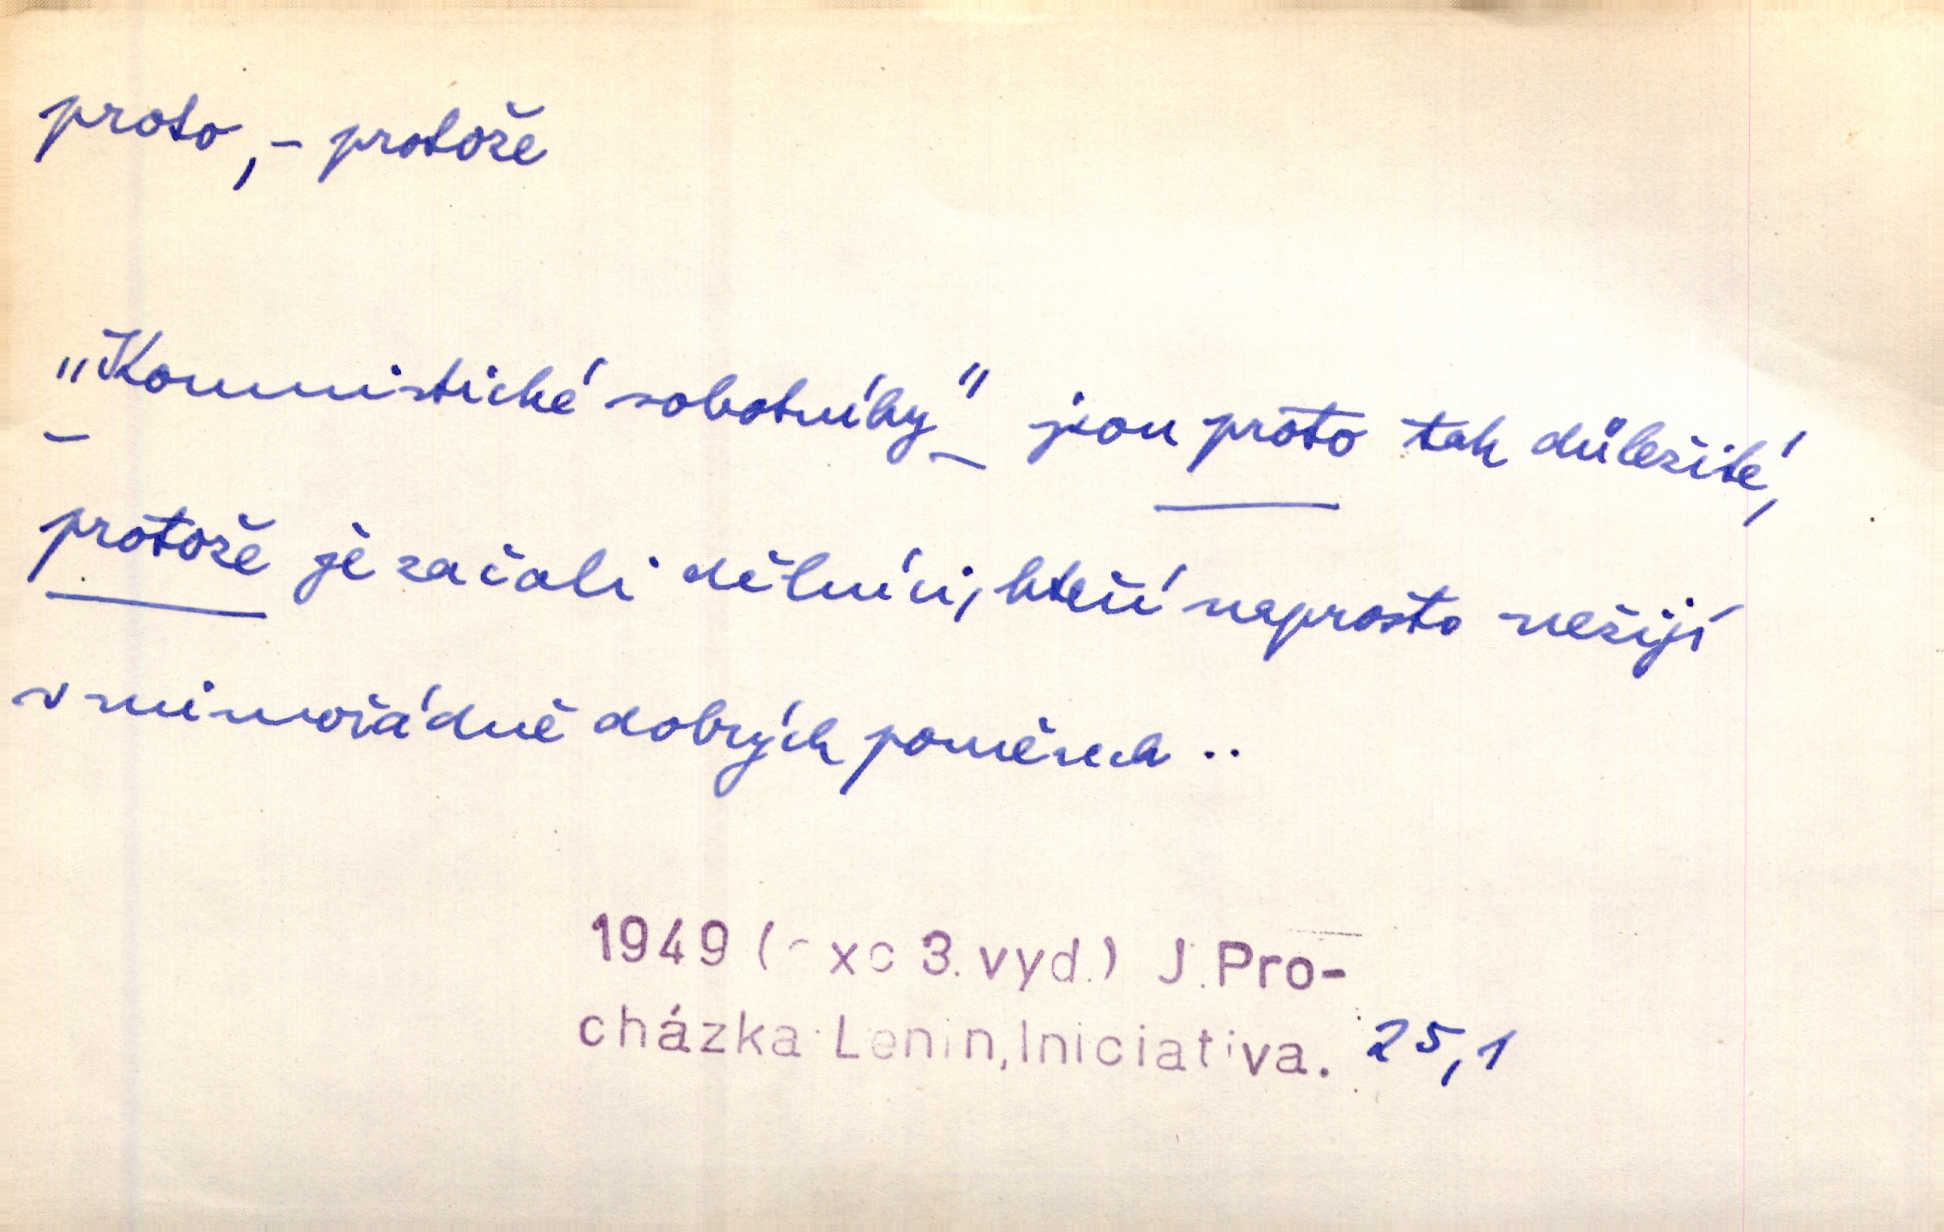 proto, - protože
„Komunistické sobotníky" jsou proto tak důležité,
protože je začali dělníci, kteří naprosto nežijí
v mimořádně dobrých poměrech ..
1949 ( xc 3. vyd.) J. Pro-
cházka Lenin, Iniciativa. 25,1